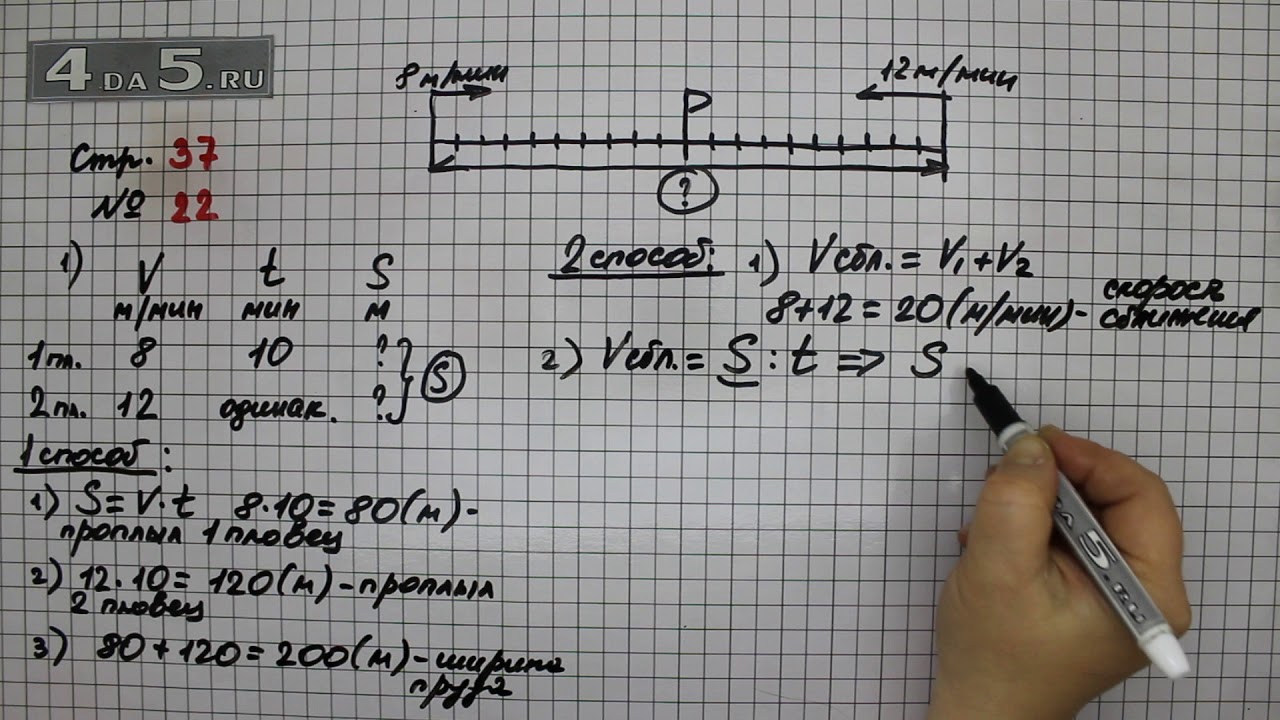 4DA5.RU
8м/мин
12м/мин
?
Стр. 37
№ 22
1) V t S
м/мин мин м
1пл. 8 10 ?
2пл. 12 одинак. ?
S
1 способ:
1) S=V·t 8·10=80(м)-
проплыл 1 пловец
2) 12·10=120(м)-проплыл
2 пловец
3) 80+120=200(м)-ширина
пруда
2 способ: 1) Vсбл.=V₁+V₂
8+12=20(м/мин)- скорость
сближения
2) Vсбл.=S:t => S
DA 5.RU